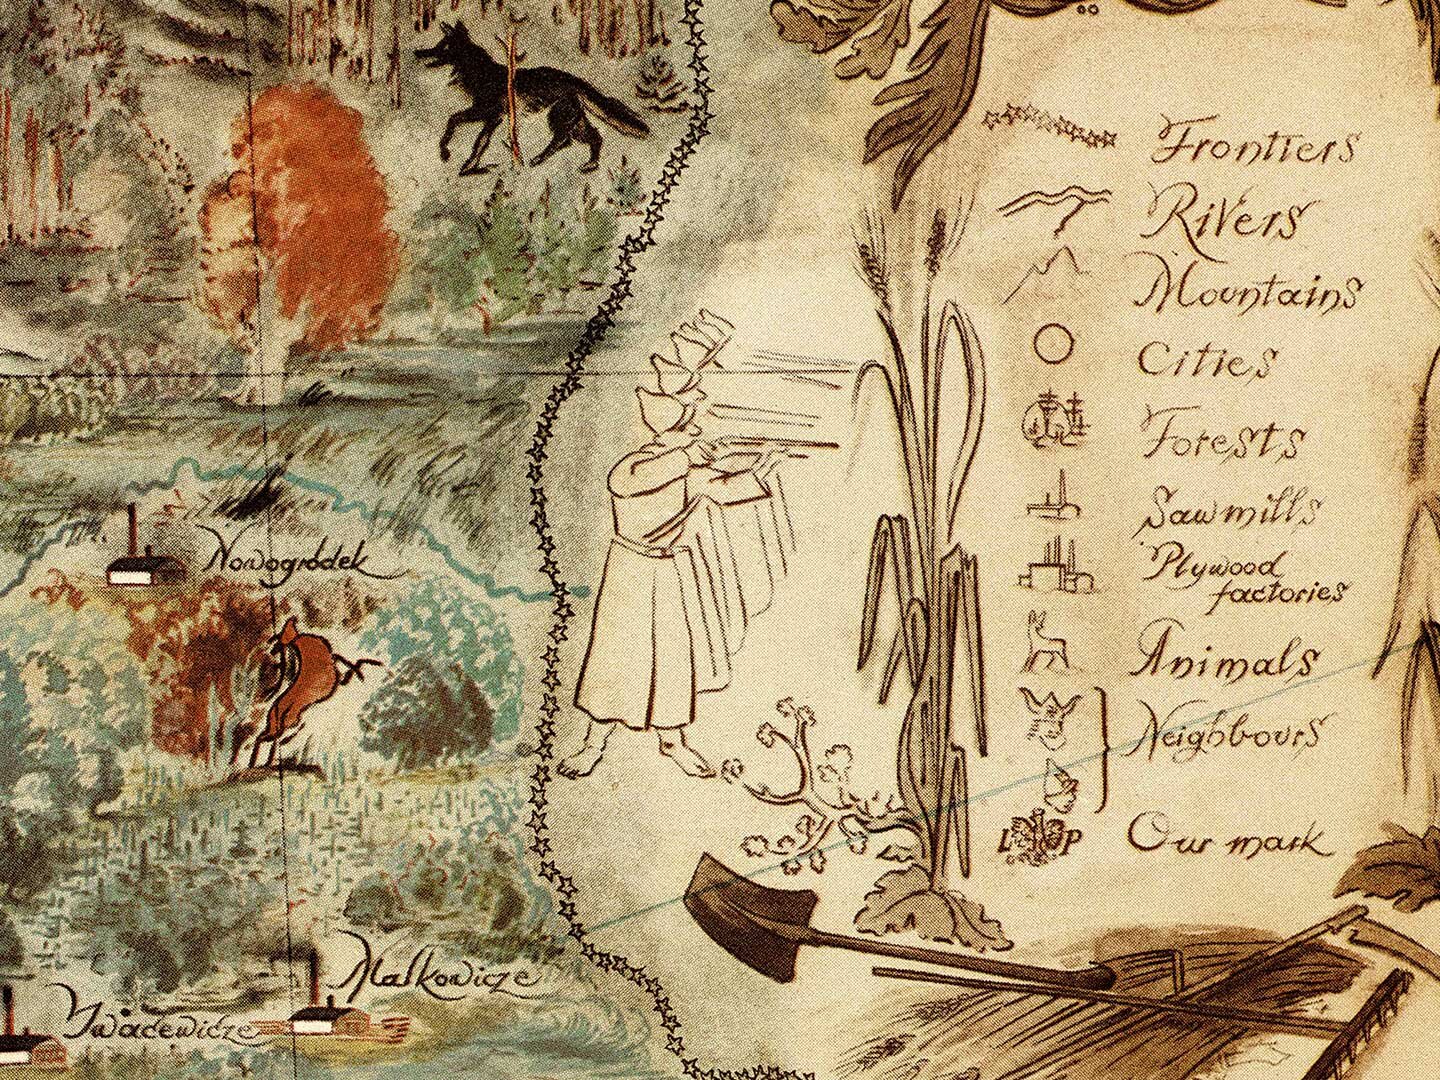 Frontiers
Rivers
Mountains
Cities
Forests
Sawmills
Plywood
factories
Animals
Neighbours
L P Our mark
Nowogródek
Małkowicze
Iwacewicze